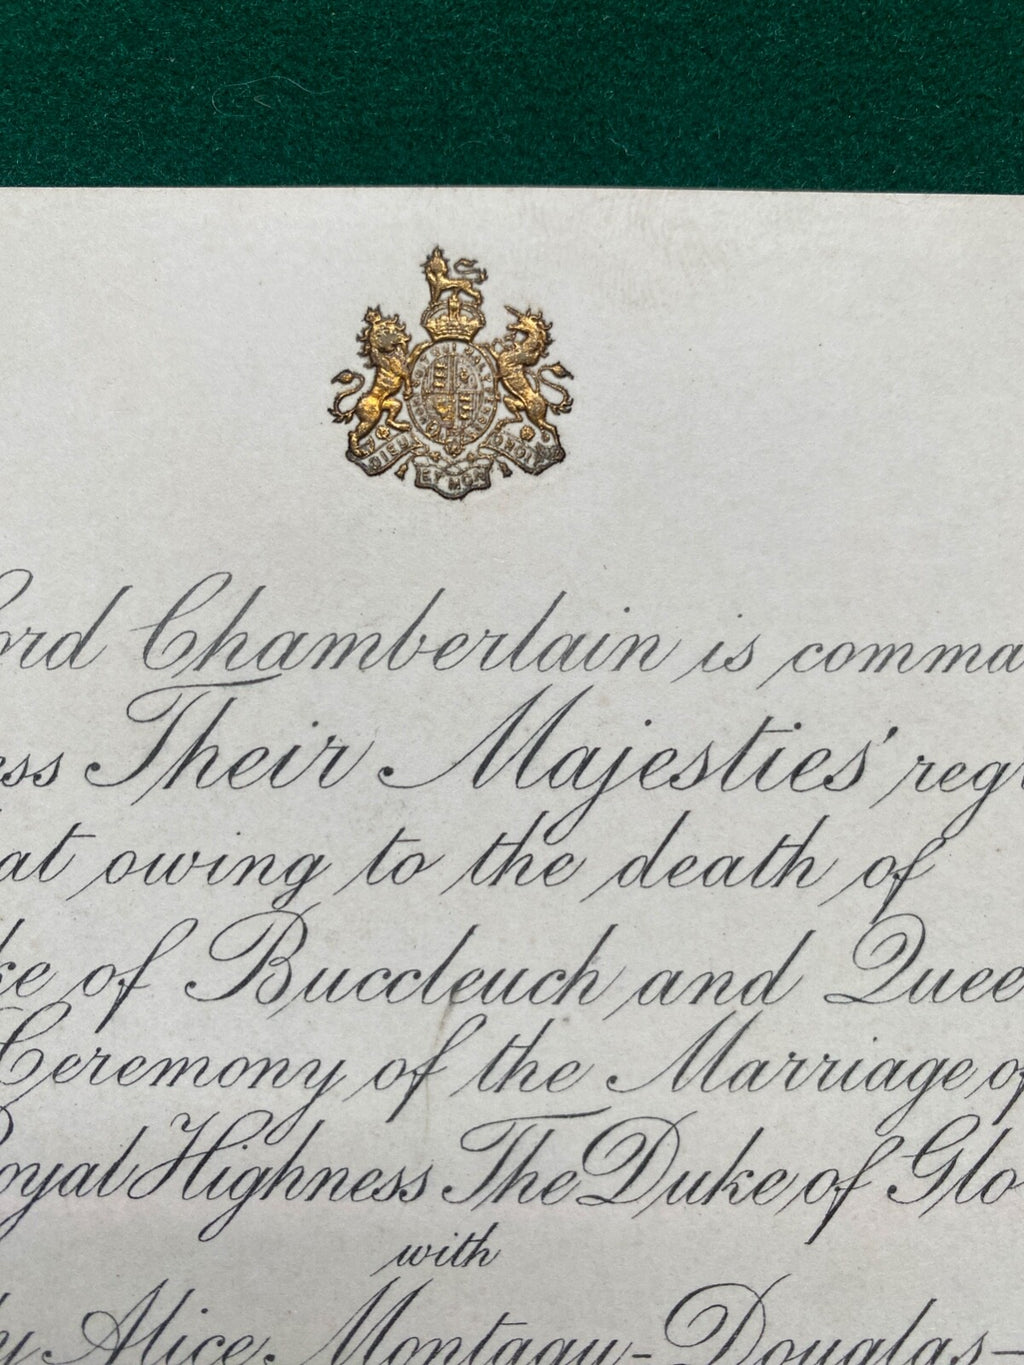 DIEU ET MON DROIT
ord Chamberlain is comma
ess Their Majesties' reg
at owing to the death of
ke of Buccleuch and Quee
Ceremony of the Marriage of
oyal Highness The Duke of Glo
with
y Alice Montagu-Douglas-